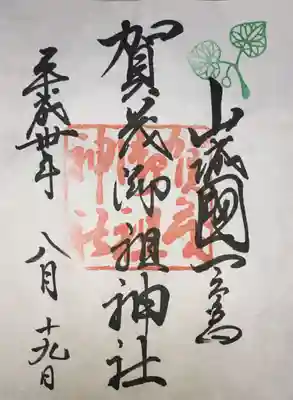 山城國一宮
賀茂御祖神社
平成卅年 八月十九日
賀茂
御祖
神社